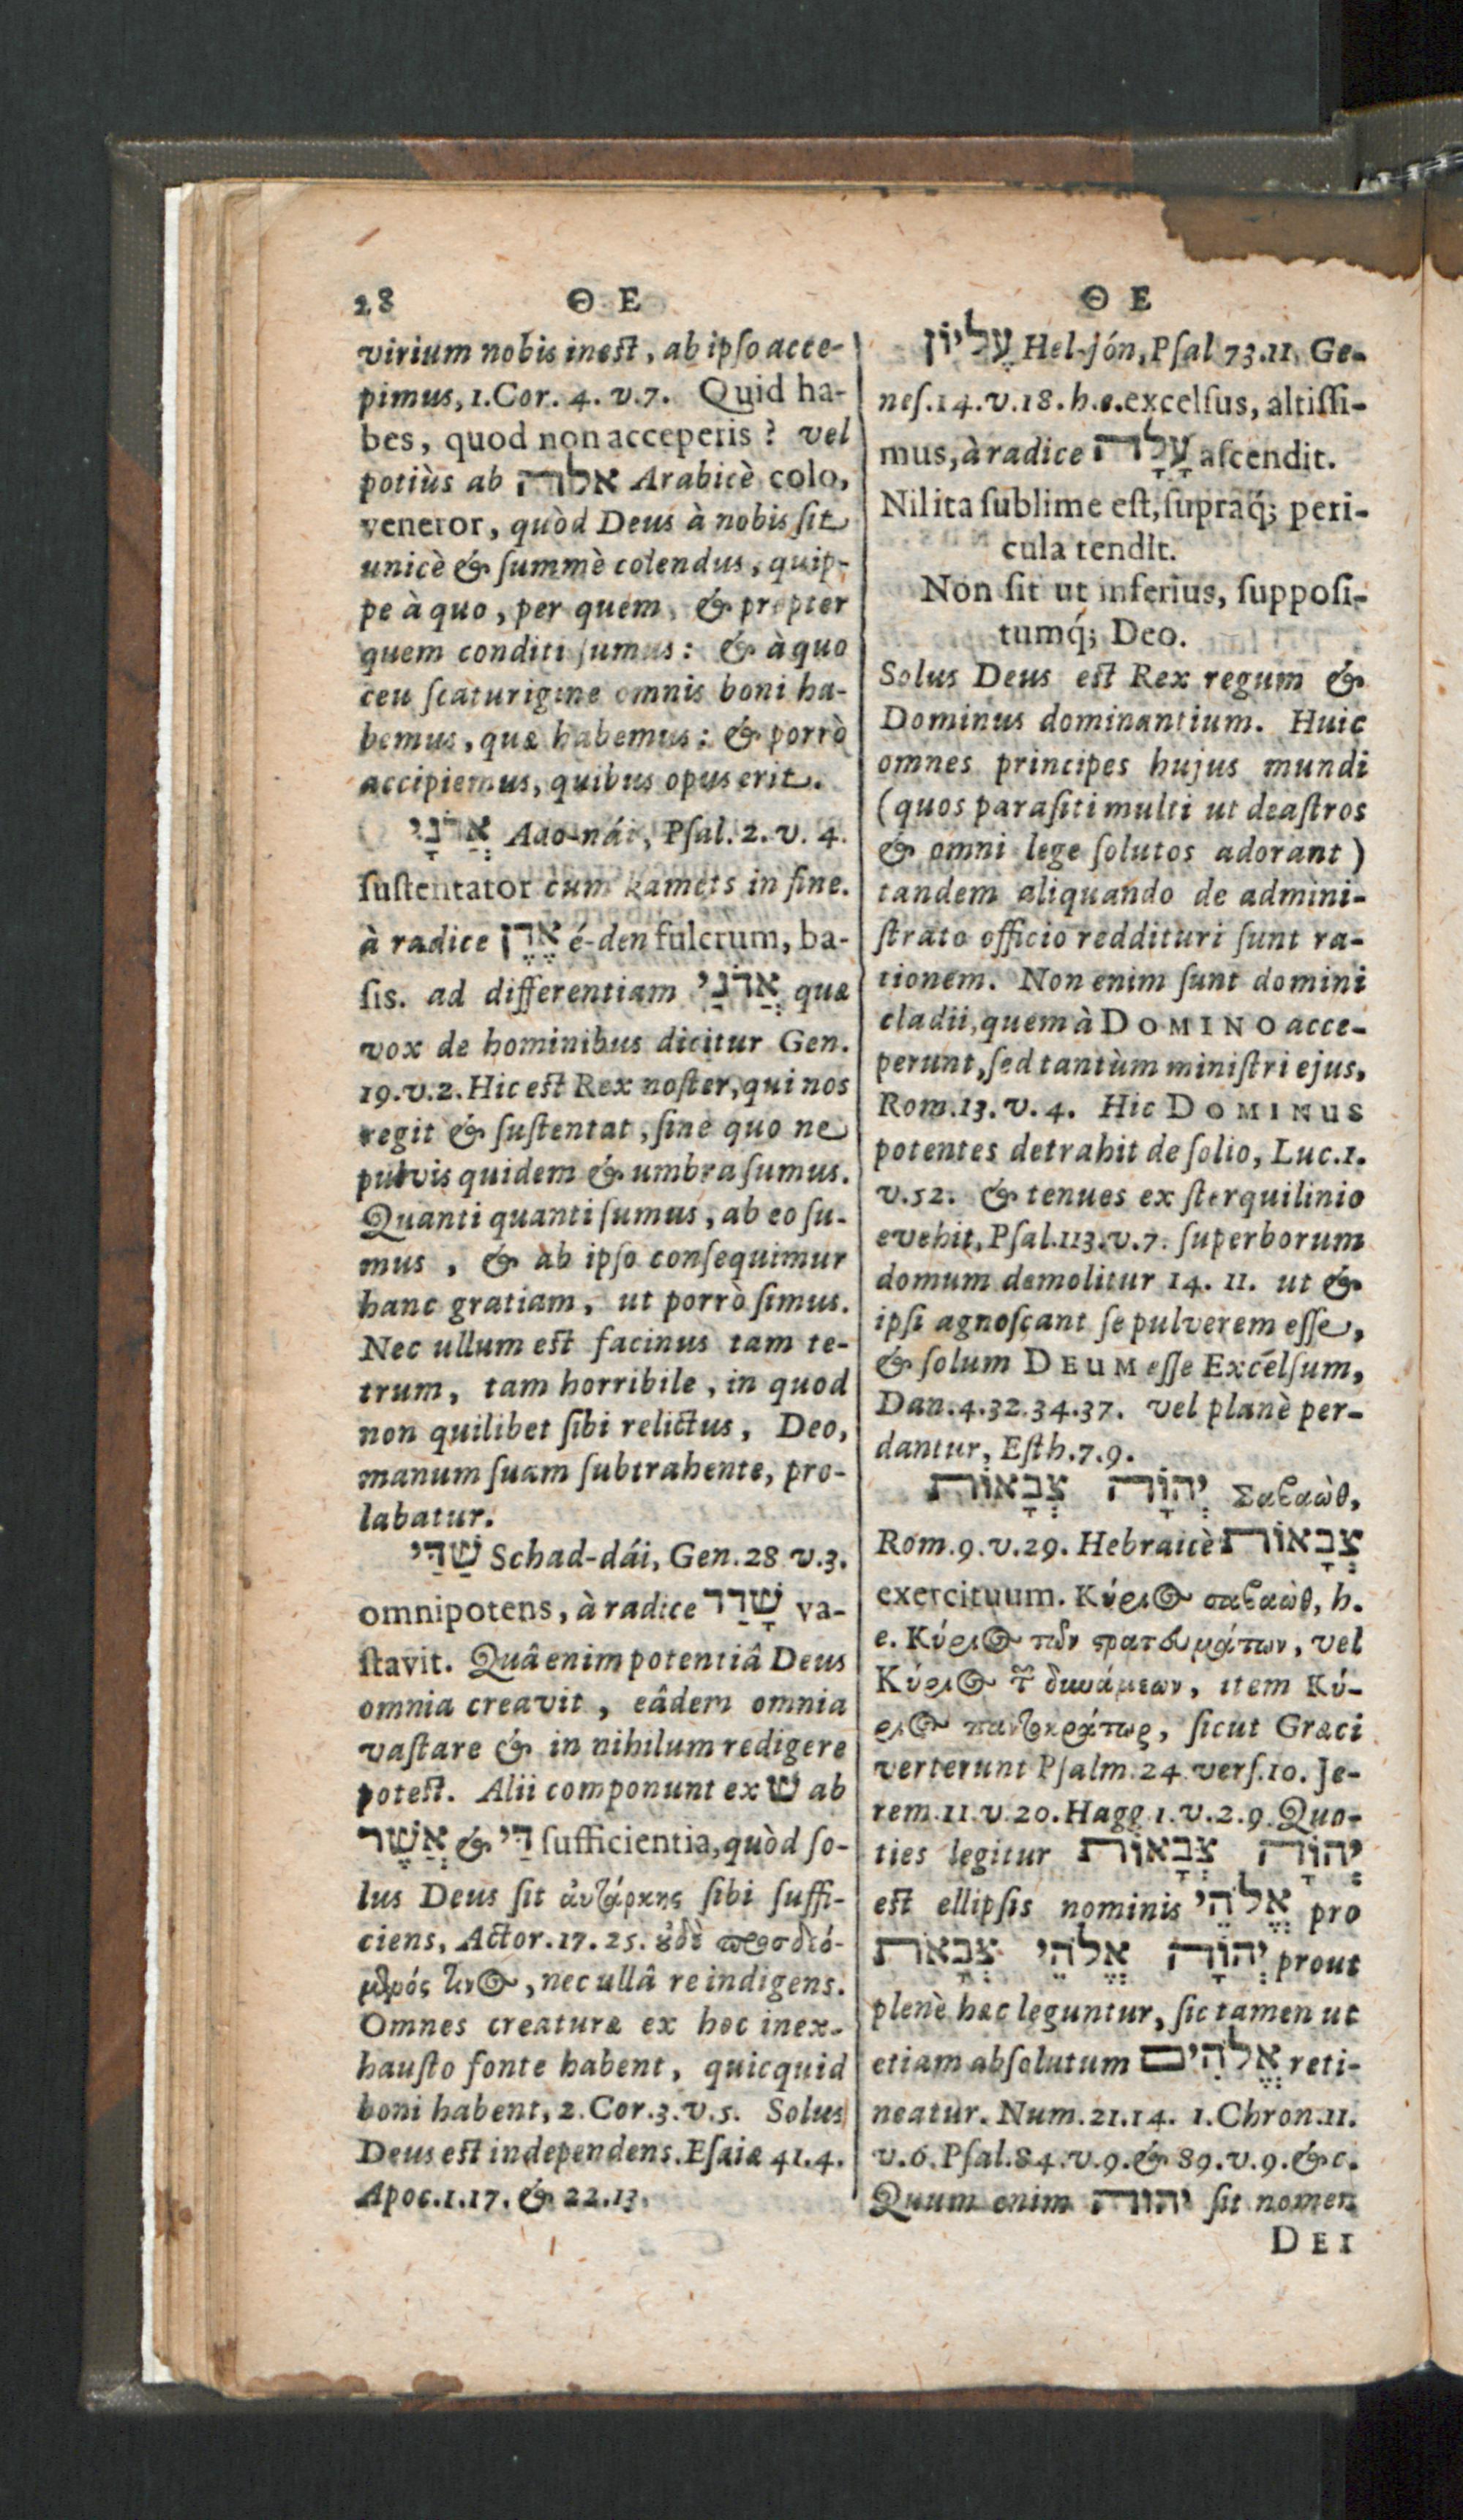 28 Θ Ε
virium nobis inest, ab ipso acce-
pimus, 1. Cor. 4. v. 7. Quid ha-
bes, quod non acceperis? vel
potiùs ab אלה Arabicè colo,
veneror, quòd Deus à nobis sit
unicè & summè colendus, quip-
pe à quo, per quem, & propter
quem conditi sumus: & à quo
ceu scaturigine omnis boni ha-
bemus, quæ habemus: & porrò
accipiemus, quibus opus erit.
אֲדֹנָי Ado-nái, Psal. 2. v. 4.
sustentator cum kamets in fine.
à radice אֶדֶן é-den fulcrum, ba-
sis. ad differentiam אֲדֹנַי quæ
vox de hominibus dicitur Gen.
19. v. 2. Hic est Rex noster, qui nos
regit & sustentat, sine quo ne
pulvis quidem & umbra sumus.
Quanti quanti sumus, ab eo su-
mus, & ab ipso consequimur
hanc gratiam, ut porrò simus.
Nec ullum est facinus tam te-
trum, tam horribile, in quod
non quilibet sibi relictus, Deo,
manum suam subtrahente, pro-
labatur.
שַׁדַּי Schad-dái, Gen. 28 v. 3.
omnipotens, à radice שָׁדַד va-
stavit. Quâ enim potentiâ Deus
omnia creavit, eâdem omnia
vastare & in nihilum redigere
potest. Alii componunt ex שׁ ab
אֲשֶׁר & דַּי sufficientia, quòd so-
lus Deus sit ἀυτάρκης sibi suffi-
ciens, Actor. 17. 25. ȣδὲ προσδεό-
μενός τινος, nec ullâ re indigens.
Omnes creaturæ ex hoc inex-
hausto fonte habent, quicquid
boni habent, 2. Cor. 3. v. 5. Solus
Deus est independens. Esaiæ 41. 4.
Apoc. 1. 17. & 22. 13.
Θ Ε
עֶלְיוֹן Hel-jón, Psal 73. 11. Ge-
nes. 14. v. 18. h. e. excelsus, altissi-
mus, à radice עָלָה ascendit.
Nil ita sublime est, supraq́; peri-
cula tendit.
Non sit ut inferius, supposi-
tumq́; Deo.
Solus Deus est Rex regum &
Dominus dominantium. Huic
omnes principes hujus mundi
(quos parasiti multi ut deastros
& omni lege solutos adorant)
tandem aliquando de admini-
strato officio reddituri sunt ra-
tionem. Non enim sunt domini
cladii, quem à DOMINO acce-
perunt, sed tantùm ministri ejus,
Rom. 13. v. 4. Hic DOMINUS
potentes detrahit de solio, Luc. 1.
v. 52. & tenues ex sterquilinio
evehit, Psal. 113. v. 7. superborum
domum demolitur 14. 11. ut &
ipsi agnoscant se pulverem esse,
& solum DEUM esse Excélsum,
Dan. 4. 32. 34. 37. vel planè per-
dantur, Esth. 7. 9.
יְהוָֹה צְבָאוֹת Σαβαὼθ,
Rom. 9. v. 29. Hebraicè צְבָאוֹת
exercituum. Κύριος σαβαὼθ, h.
e. Κύριος τῶν στρατευμάτων, vel
Κύριος τῶν δυνάμεων, item Κύ-
ριος παντοκράτωρ, sicut Græci
verterunt Psalm. 24 vers. 10. Je-
rem. 11. v. 20. Hagg 1. v. 2. 9. Quo-
ties legitur יְהוָֹה צְבָאוֹת
est ellipsis nominis אֱלֹהֵי pro
יְהוָֹה אֱלֹהֵי צְבָאֹת prout
plenè hæc leguntur, sic tamen ut
etiam absolutum אֱלֹהִים reti-
neatur. Num. 21. 14. 1. Chron. 11.
v. 6. Psal. 84. v. 9. & 89. v. 9. &c.
Quum enim יהוה sit nomen
DEI